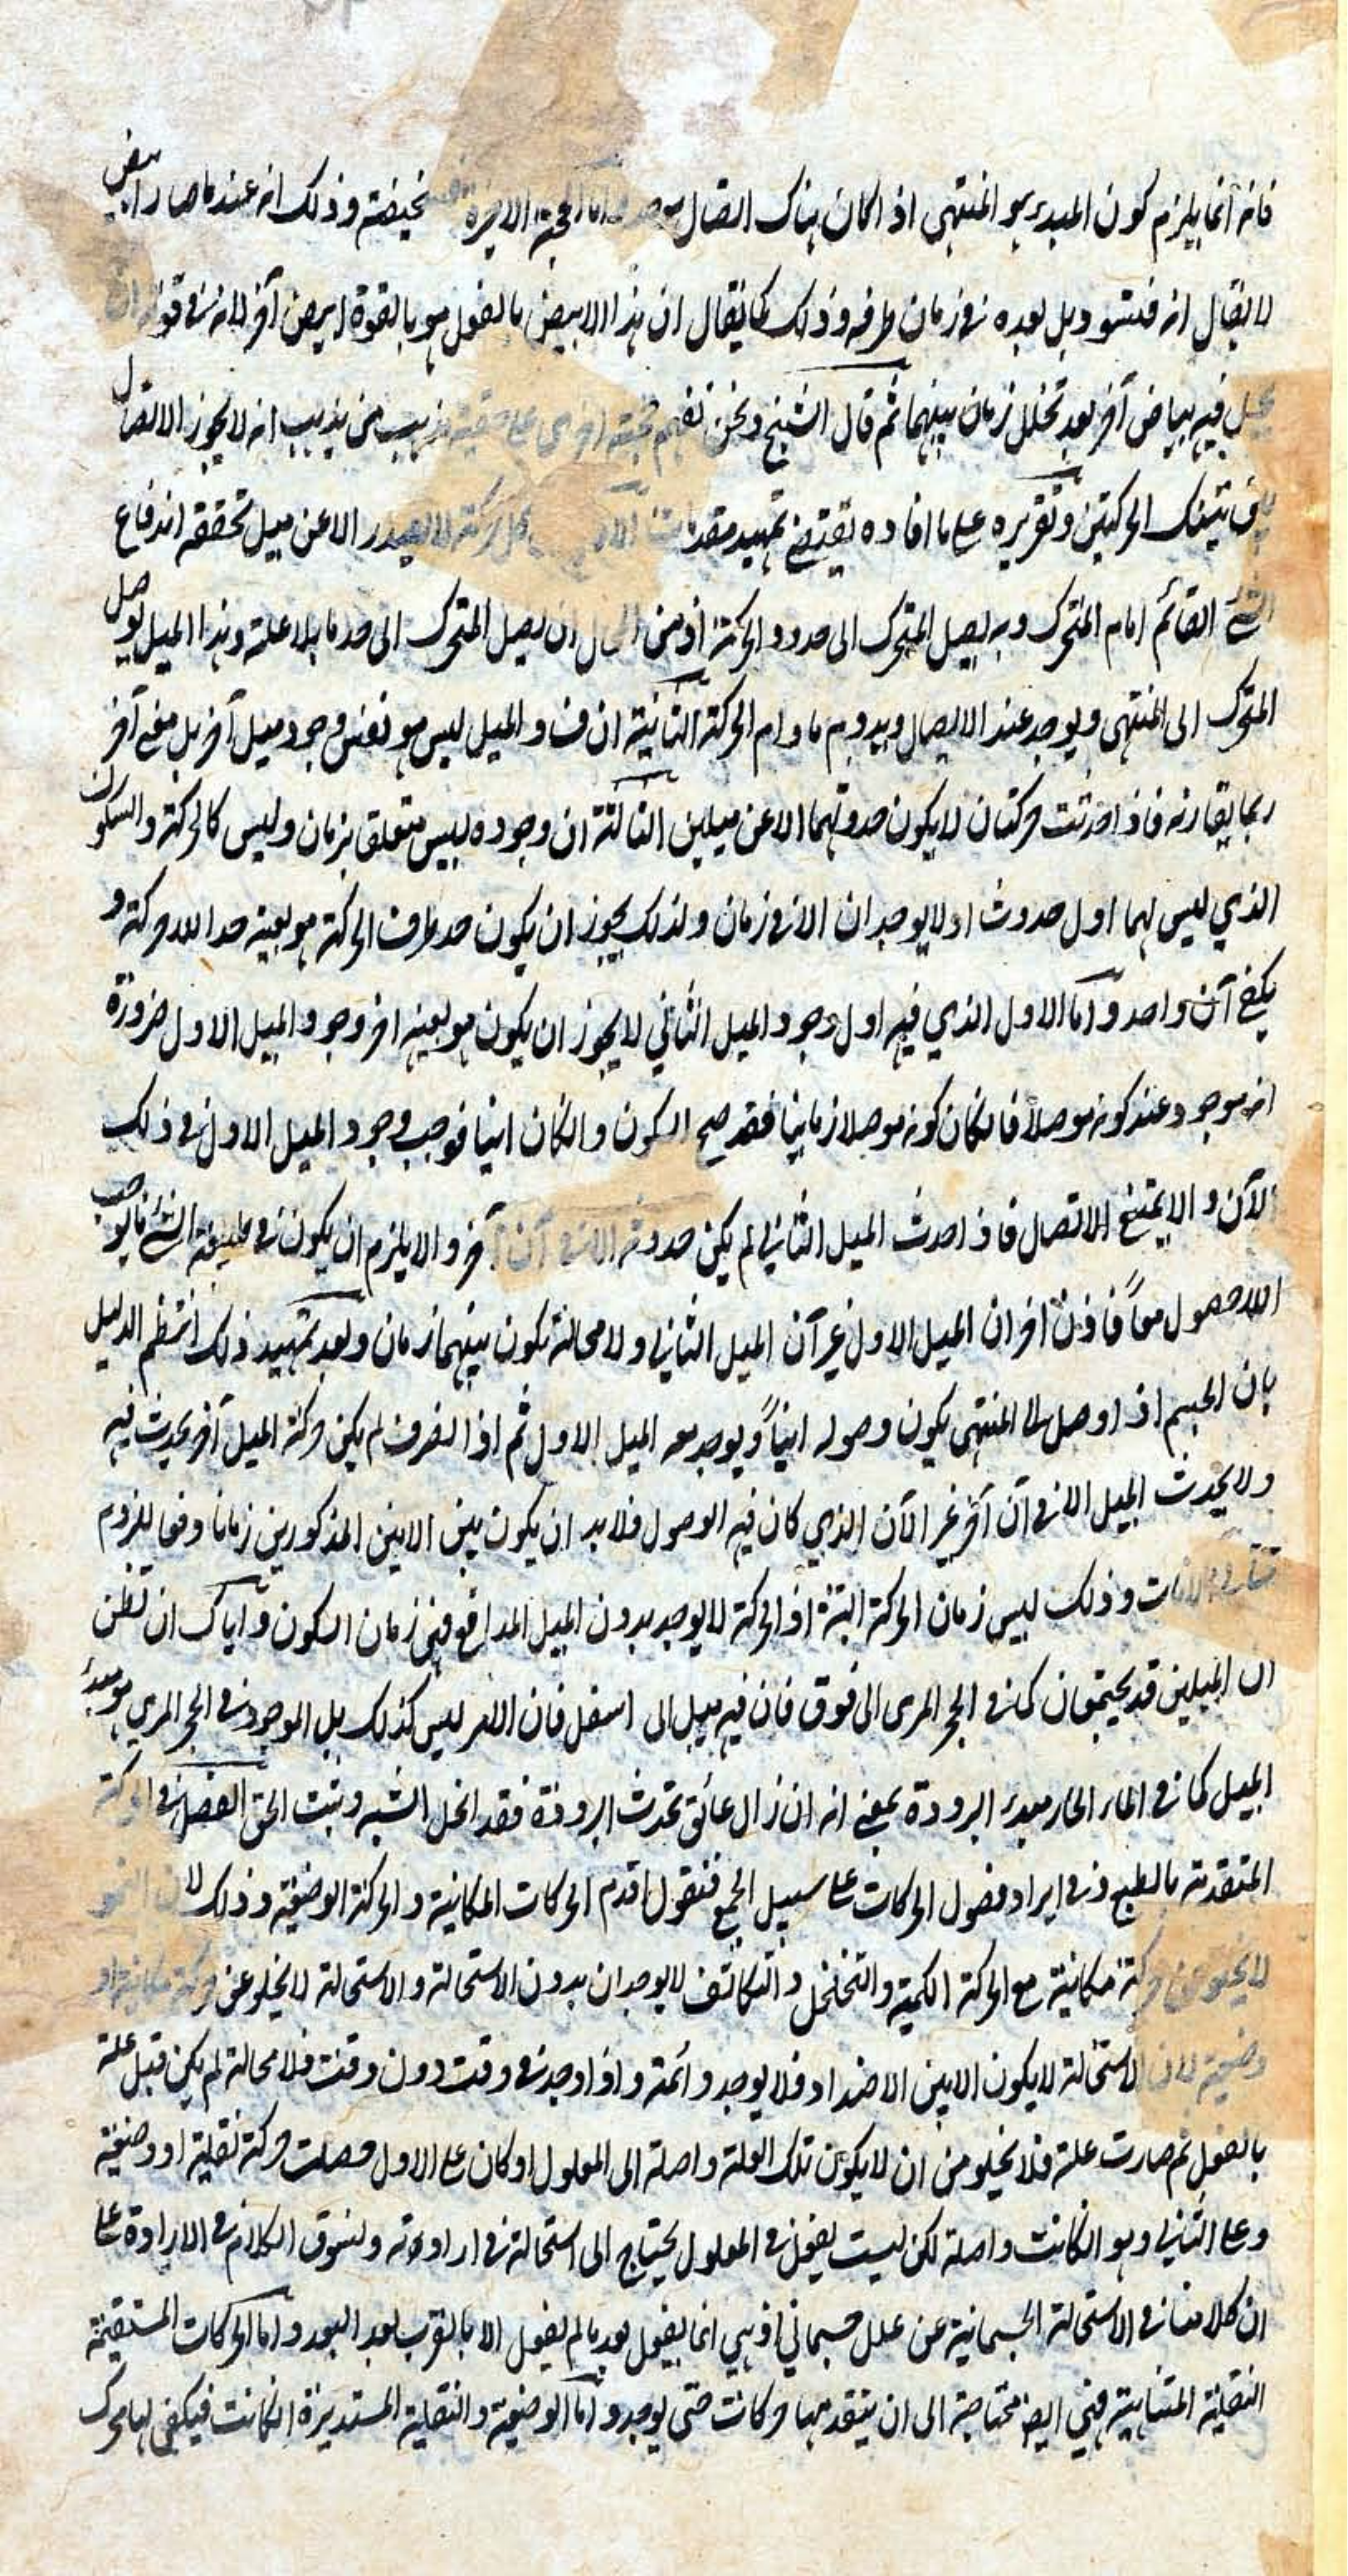 فانه انما يلزم كون المبدء هو المنتهى اذا كان هناك اتصال واما الحجة الاخيرة سخيفة وذلك انه عندما صار ابيض
لا يقال انه فيتسود بل بعده في زمان طرفه وذلك كما يقال ان هذا الابيض بالفعل هو بالقوة ابيض آخر لانه في قوته ان
يحل فيه بياض آخر بعد تخلل زمان بينهما ثم قال الشيخ ونحن نفهم حجته اخرى على مذهب من يذهب انه لا يجوز الاتصال
بين تينك الحركتين وتقريره على ما افاده يقتضي تمهيد مقدمات الاولى كل حركة لا تصدر الا عن ميل تحققه اندفاع
الشئ القائم امام المتحرك وبه يصل المتحرك الى حدود الحركة اذ من المحال ان يصل المتحرك الى حد ما بلا علة وهذا الميل يوصل
المتحرك الى المنتهى ويوجد عند الايصال ويدوم ما دام الحركة الثانية ان فساد الميل ليس هو نفس وجود ميل آخر بل معنى آخر
ربما يقارنه فاذا حدثت حركتان لا يكون حدوثهما الا عن ميلين الثالثة ان وجوده ليس متعلق بزمان وليس كالحركة والسكون
الذي ليس لهما اول حدوث اولا يوجدان الا في زمان ولذلك يجوز ان يكون حد طرف الحركة هو بعينه حد اللاحركة و
يكفي آن واحد واما الاول الذي فيه اول وجود الميل الثاني لا يجوز ان يكون هو بعينه اخر وجود الميل الاول ضرورة
انه موجود عند كونه موصلا فان كان كونه موصلا زمانيا فقد صح السكون وان كان انيا فوجب وجود الميل الاول في ذلك
الآن والا يمتنع الاتصال فاذا حدث الميل الثاني لم يكن حدوثه الا في آن آخر والا يلزم ان يكون في طبيعة الشئ ما يوجب
اللاحصول معاً فاذن اخر ان الميل الاول غير آن الميل الثاني ولا محالة يكون بينهما زمان وبعد تمهيد ذلك انتظم الدليل
بان الجسم اذا وصل الى المنتهى يكون وصوله انياً ويوجد معه الميل الاول ثم اذا انصرف لم يكن حركة الميل آخر يحدث فيه
ولا يحدث الميل الا في آن آخر غير الآن الذي كان فيه الوصول فلا بد ان يكون بين الانين المذكورين زمانا دفعا للزوم
تتالي الآنات وذلك ليس زمان الحركة البتة اذ الحركة لا يوجد بدون الميل المدافع فهي زمان السكون واياك ان تظن
ان الميلين قد يجتمعان كما في الحجر المرمى الى فوق فان فيه ميل الى اسفل فان الامر ليس كذلك بل الموجود في الحجر المرمي هو مبدء
الميل كما في الماء الحار مبدء البرودة بمعنى انه ان زال عائق تحدث البرودة فقد انحل الشبه وثبت الحق الفصل في الحركة
المتقدمة بالطبع وفي ايراد فصول الحركات على سبيل الجمع فنقول اقدم الحركات المكانية والحركة الوضعية وذلك لان النمو
لا يخلو عن حركة مكانية مع الحركة الكمية والتخلخل والتكاثف لا يوجدان بدون الاستحالة والاستحالة لا يخلو عن حركة مكانية او
وضعية لان الاستحالة لا يكون الا بين الاضداد فلا يوجد دائمة واذا وجد في وقت دون وقت فلا محالة لم يكن قبل علة
بالفعل ثم صارت علة فلا يخلو من ان لا يكون تلك العلة واصلة الى المعلول او كان على الاول حصلت حركة نقلية او وضعية
وعلى الثاني وهو ان كانت واصلة لكن ليست بفعل في المعلول يحتاج الى استحالة في ارادته ولنسوق الكلام في الارادة على
ان كلامنا في الاستحالة الجسمانية عن علل جسماني اذ هي انما يفعل بعد ما لم يفعل الا بالقرب بعد البعد واما الحركات المستقيمة
النقلية المتناهية فهي ايضا محتاجة الى ان يتقدمها حركات حتى يوجد واما الوضعية والنقلية المستديرة ان كانت فيكفي لها محرك